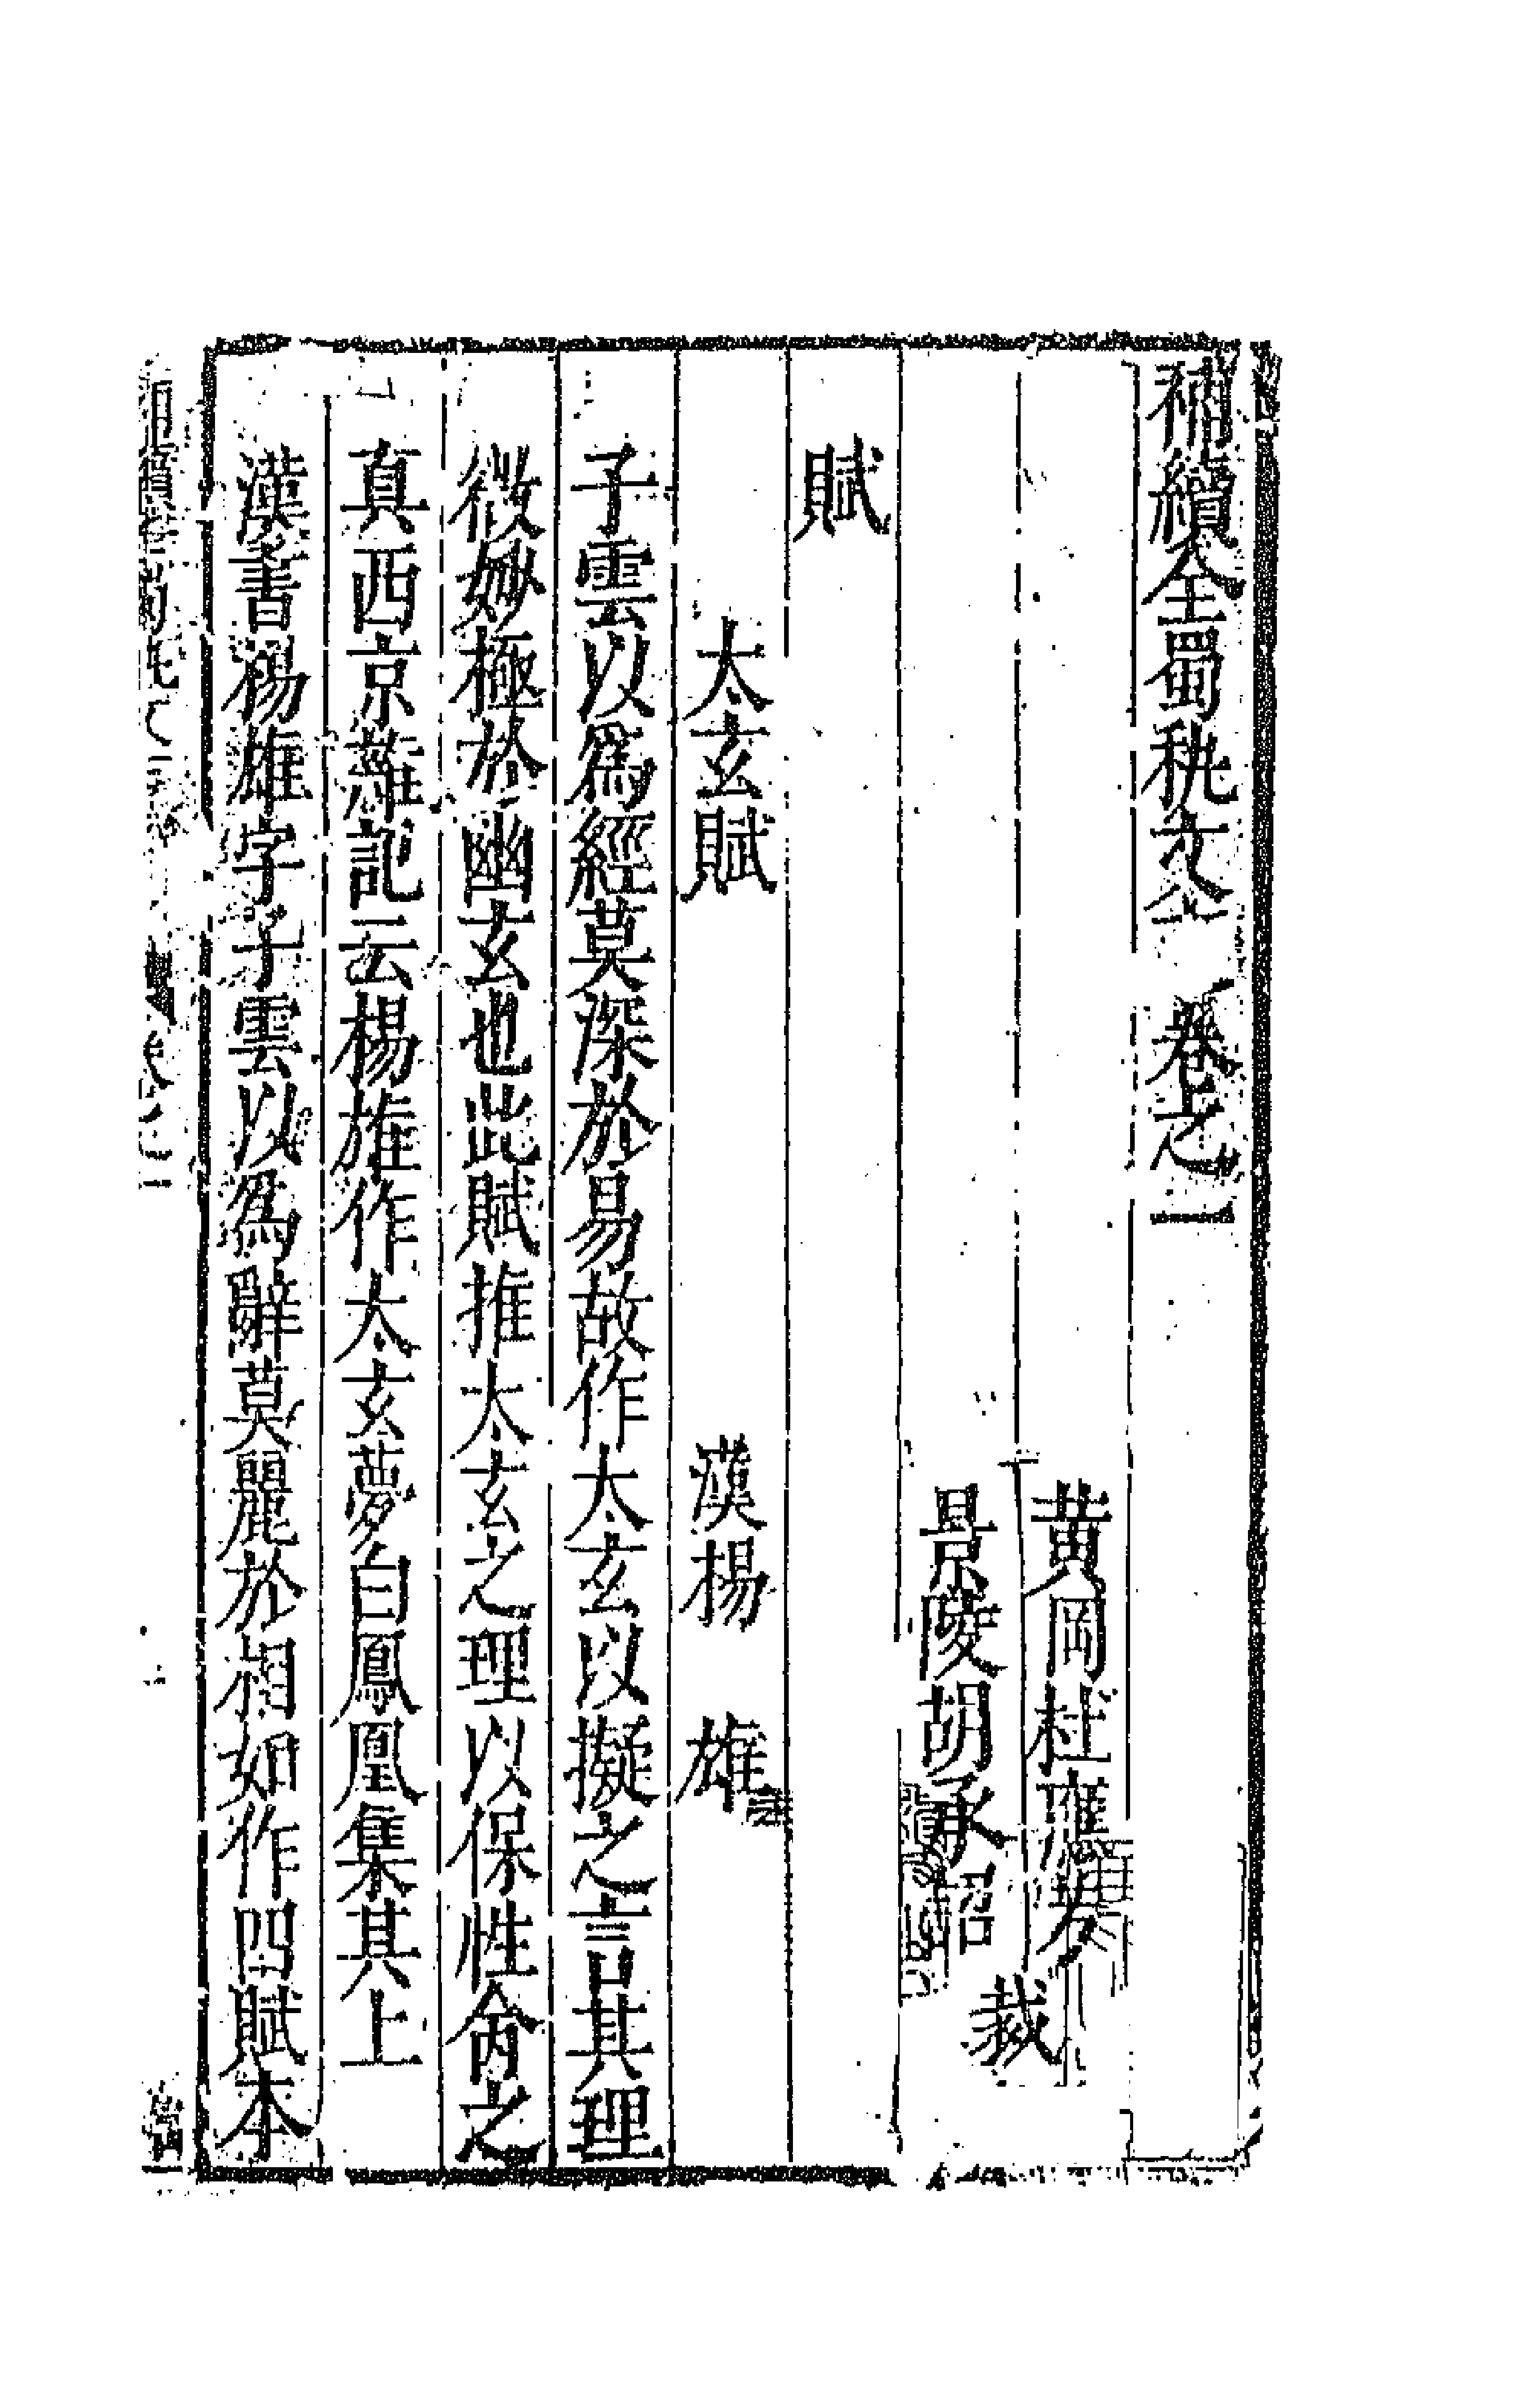 補續全蜀秇文 卷之一
黄岡杜應芳
景陵胡承詔 裁
賦
太玄賦 漢楊 雄
子雲以爲經莫深於易故作太玄以擬之言其理
微妙極於幽玄也此賦推太玄之理以保性命之
真西京雜記云楊雄作太玄夢白鳳凰集其上
漢書楊雄字子雲以爲辭莫麗於相如作四賦本